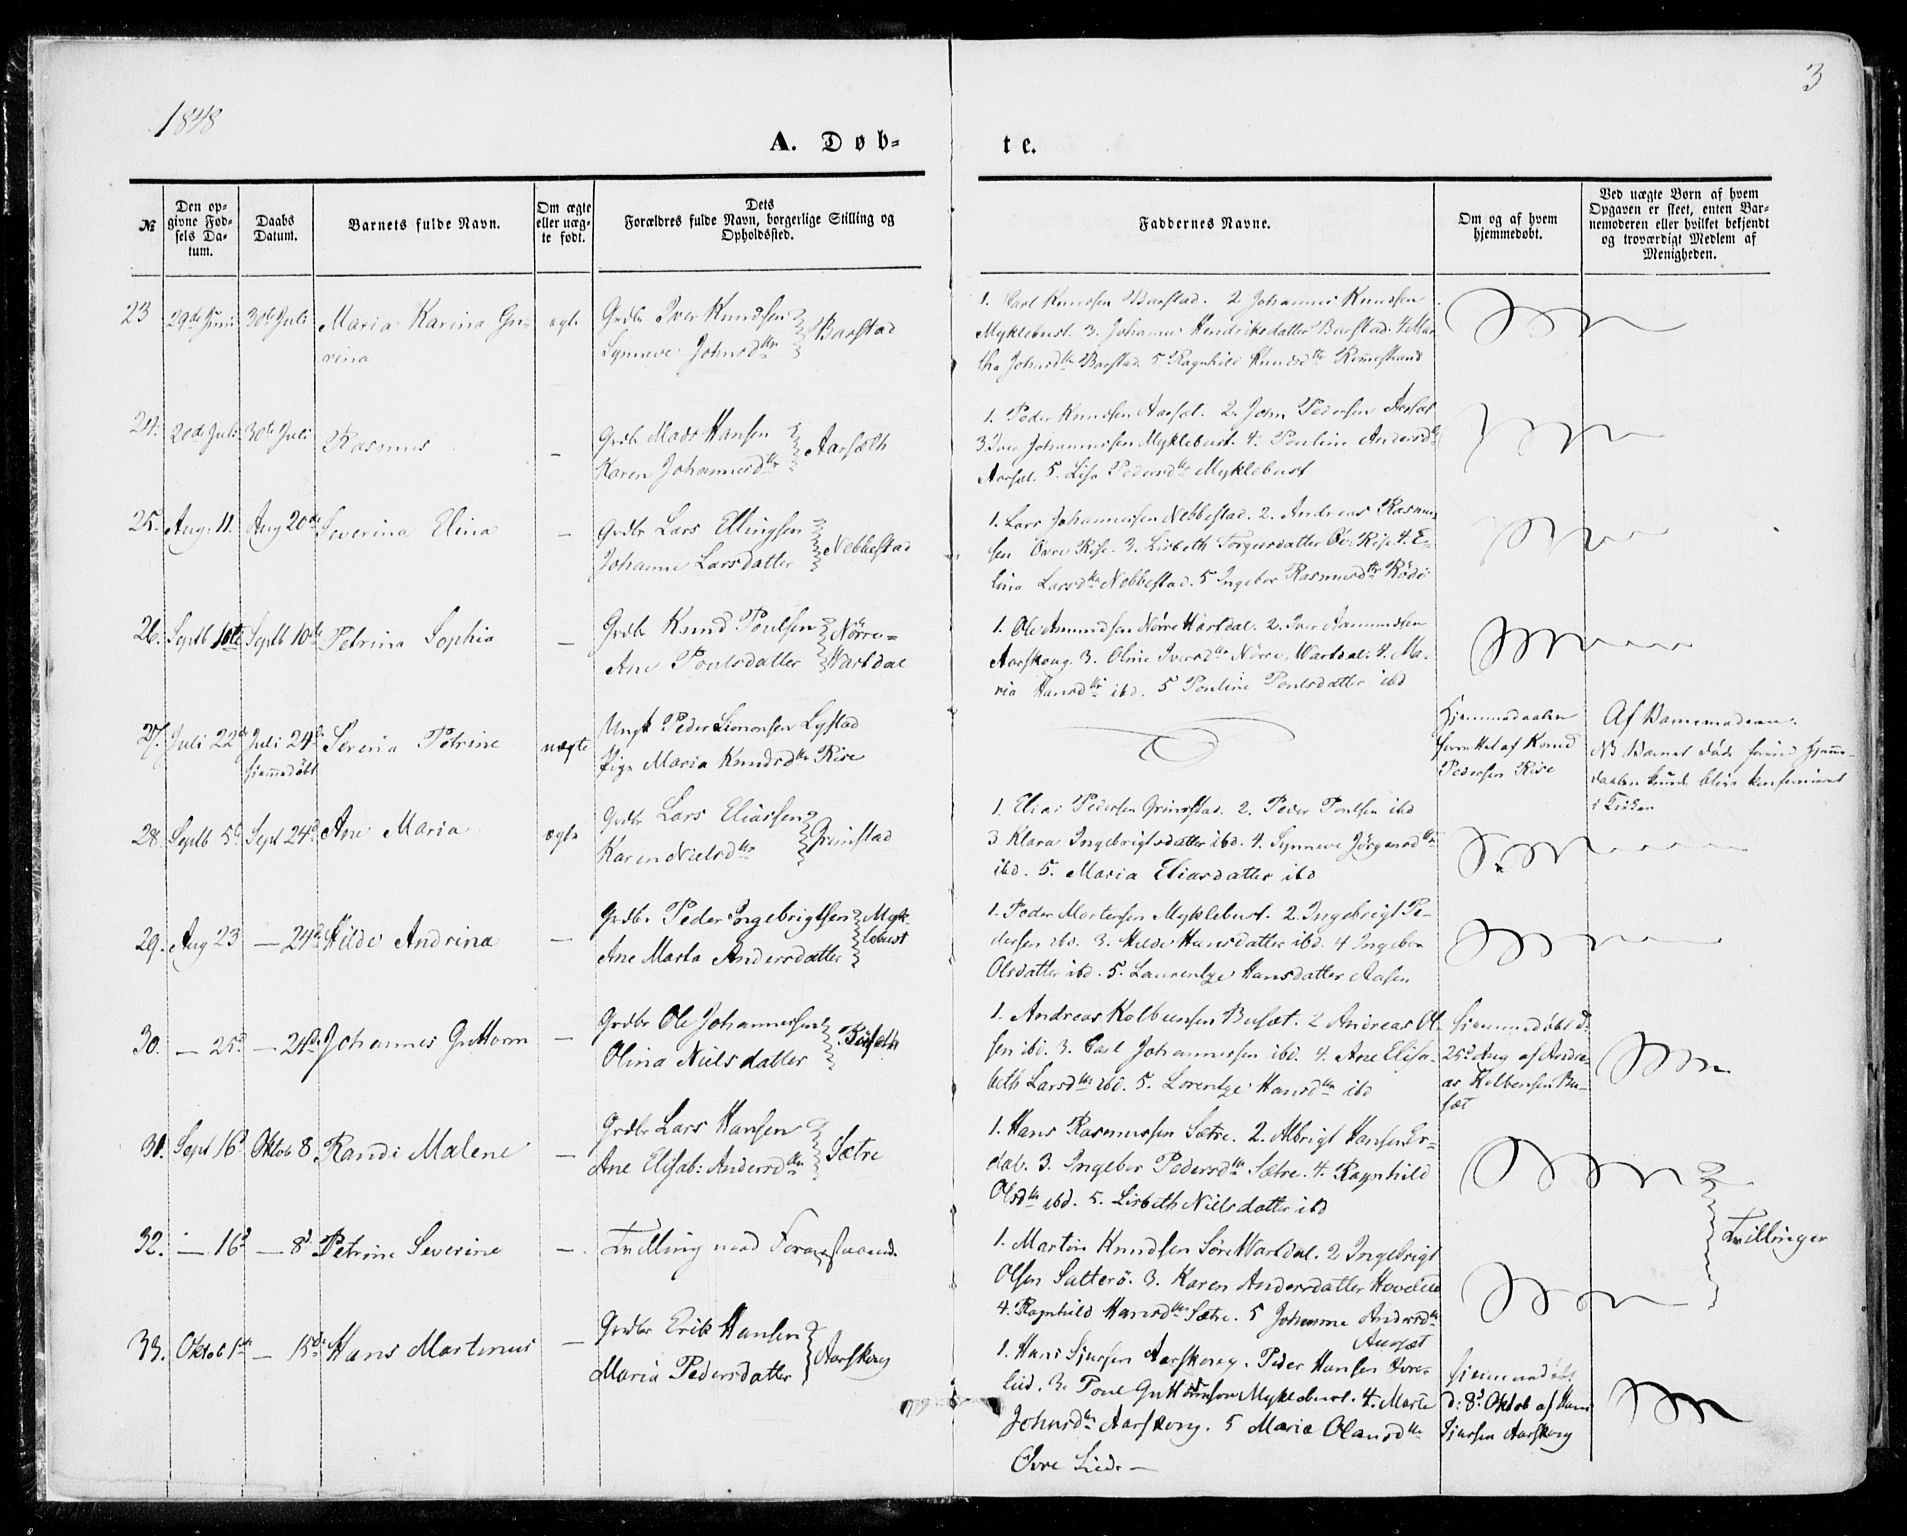 3
1848
A. Døb-
te.
№
Den op-
givne Fød-
sels Da-
tum.
Daabs
Datum.
Barnets fulde Navn.
Om ægte
eller uæg-
te født.
Dets
Forældres fulde Navn, borgerlige Stilling og
Opholdssted.
Faddernes Navne.
Om og af hvem
hjemmedøbt.
Ved uægte Børn af hvem
Opgaven er skeet, enten Bar-
nemoderen eller hvilket bekjendt
og troværdigt Medlem af
Menigheden.
23 29de Juni 30te Juli Maria Karina Gu-
rina
ægte
Grdbr Iver Knudsen
Synneve Johnsdtr
Barstad
1. Carl Knudsen Barstad. 2 Johannes Knudsen
Myklebust. 3. Johanne Hendriksdatter Barstad. 4 Mar-
tha Johnsdtr Barstad. 5 Ragnhild Knudsdtr Rimestrand
24. 20de Juli 30te Juli Rasmus
—
Grdbr Mads Hansen
Karen Johannesdtr
Aarsæth
1. Peder Knudsen Aarsæt. 2. John Pedersen Aarsæt
3. Iver Johannessen Myklebust. 4. Pouline Andersdtr
Aarsæt. 5. Lisa Pedersdtr Myklebust
25. Aug. 11. Aug 20de Severina Elina
—
Grdbr Lars Ellingsen
Johanne Larsdatter
Nebbestad
1. Lars Johannessen Nebbestad. 2. Andreas Rasmus-
sen Øvre Rise. 3. Lisbeth Torgersdatter Øv: Rise 4. E-
lina Larsdtr Nebbestad. 5 Ingebor Rasmusdtr Rödö
26. Septb 10de Septb 10de Petrina Sophia
—
Grdbr Knud Poulsen
Ane Poulsdatter
Nörre-
Wartdal
1. Ole Amundsen Nörre Wartdal. 2. Iver Aamundsen
Aarskoug. 3. Oline Iversdtr Nörre Wartdal: 4. Ma-
ria Hansdtr ibd. 5 Pouline Poulsdatter ibd
27. Juli 22de Juli 24de
hjemmedöbt
Severia Petrine
uægte
Ungk Peder Simonsen Lystad
Pige Maria Knudsdtr Rise
Hjemmedaaben
forrettet af Knud
Pedersen Rise
Af Barnemoderen.
NB Barnet döde förend Hjemme-
daaben kunde blive konfirmeret
i Kirken
28. Septb 5d Sept 24d Ane Maria
ægte
Grdbr Lars Eliassen
Karen Nielsdtr
Grimstad
1. Elias Pedersen Grimstad. 2. Peder Poulsen ibd
3 Klara Ingebrigtsdatter ibd. 4. Synneve Jörgensdtr
ibd. 5. Maria Eliasdatter ibd
29. Aug 23 — 24d Hilde Andrina
—
Grdbr Peder Ingebrigtsen
Ane Marta Andersdatter
Myk-
lebust
1. Peder Mortensen Myklebust. 2. Ingebrigt Pe-
dersen ibd. 3. Hilde Hansdatter ibd. 4 Ingebor
Olsdatter ibd. 5. Laurentze Hansdatter Aasen
30. — 25d — 24d Johannes Guttorm
—
Grdbr Ole Johannessen
Olina Nielsdatter
Büsæth
1. Andreas Kolbensen Busæt. 2 Andreas Ol-
sen ibd. 3. Carl Johannessen ibd. 4. Ane Elisa-
beth Larsdtr ibd. 5. Lorentze Hansdtr ibd
hjemmedöbt d:
25d Aug af Andre-
as Kolbensen Bu-
sæt
31. Sept 16d Oktob 8 Randi Malene
—
Grdbr Lars Hansen
Ane Elisab: Andersdtr
Sætre
1. Hans Rasmussen Sætre. 2. Albrigt Hansen Er-
dal. 3. Ingebor Pedersdtr Sætre. 4. Ragnhild
Olsdtr ibd. 5. Lisbeth Nielsdatter ibd
32. — 16d — 8d Petrine Severine
—
Tvilling med Foranstaaende
1. Martin Knudsen Söre Wartdal. 2 Ingebrigt
Olsen Satterö. 3. Karen Andersdatter Hovdeid
4. Ragnhild Hansdtr Sætre. 5 Johanne Andersdtr
Aursæt
Tvillinger
33. Oktob 1ste — 15de Hans Martinus
—
Grdbr Erik Hansen
Maria Pedersdatter
Aarskoug
1. Hans Sjursen Aarskoug. Peder Hansen Övre-
lied. 3. Poul Guttormsen Myklebust. 4. Marte
Johnsdtr Aarskoug. 5 Maria Olausdtr
Øvre Lied. —
hjemmedöbt
d: 8d Oktob af Hans
Sjursen Aarskoug